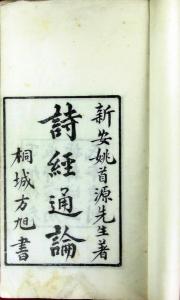 新安姚首源先生著
詩經通論
桐城方旭書